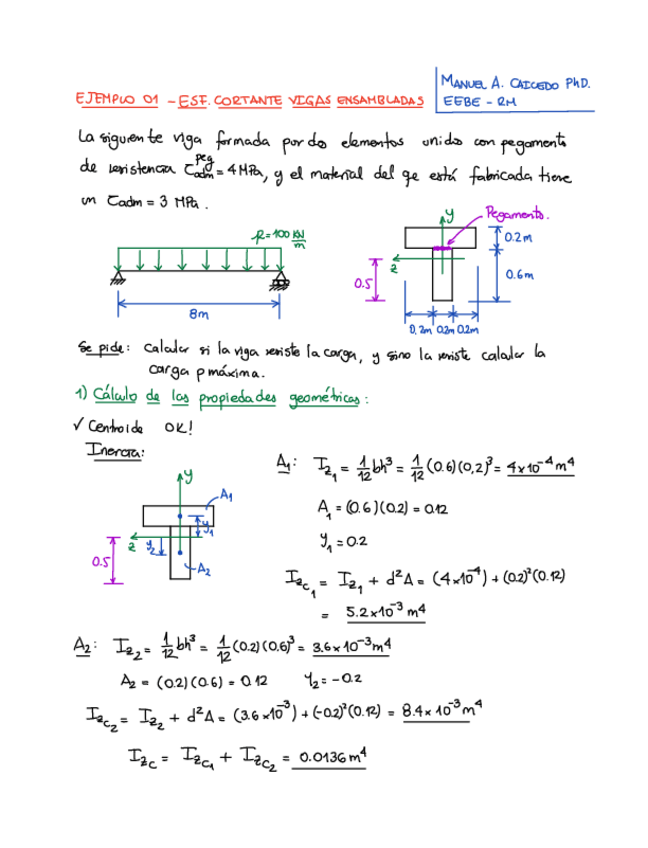 MANUEL A. CAICEDO PhD.
EEBE - RM
EJEMPLO 01 - ESF. CORTANTE VIGAS ENSAMBLADAS
La siguiente viga formada por dos elementos unido con pegamento
de resistencia τadm^peg = 4 MPa, y el material del qe está fabricada tiene
un τadm = 3 MPa.
p=100 kN/m
8m
y
Pegamento.
z
0.2m
0.6m
0.5
0.2m 0.2m 0.2m
Se pide: Calcular si la viga resiste la carga, y sino la resiste calcular la
carga p máxima.
1) Cálculo de las propiedades geométricas:
✓ Centroide OK!
Inercia:
y
A1
z
y2
y1
0.5
A2
A1: Iz1 = 1/12 bh³ = 1/12 (0.6)(0,2)³ = 4x10⁻⁴ m⁴
A1 = (0.6)(0.2) = 0.12
y1 = 0.2
Izc1 = Iz1 + d²A = (4x10⁻⁴) + (0.2)²(0.12)
= 5.2x10⁻³ m⁴
A2: Iz2 = 1/12 bh³ = 1/12 (0.2)(0.6)³ = 3.6x10⁻³ m⁴
A2 = (0.2)(0.6) = 0.12 y2 = -0.2
Izc2 = Iz2 + d²A = (3.6x10⁻³) + (-0.2)²(0.12) = 8.4x10⁻³ m⁴
Izc = Izc1 + Izc2 = 0.0136 m⁴